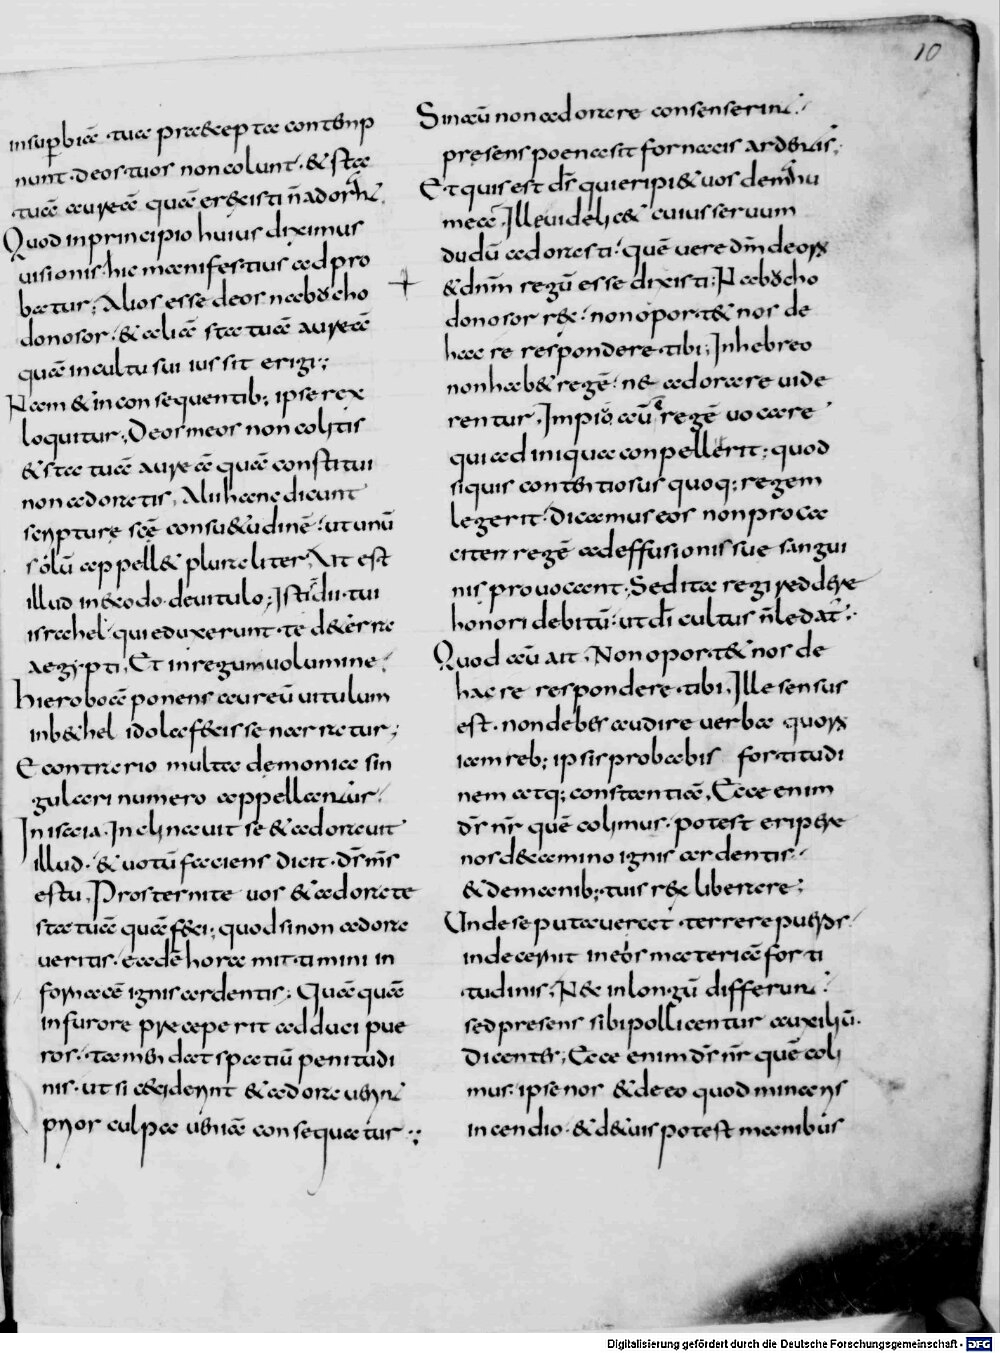 10
insuperbiā tua praecepta contemp
nunt. deos tuos non colunt. & sta
tuā aureā quā erexisti n̄ adorant.
Quod in principio huius diximus
uisionis. hic manifestius adpro
batur; Alios esse deos nabucho
donosor. & aliā statuā aureā
quā in cultu sui iussit erigi;
Nam & in consequentib; ipse rex
loquitur; Deos meos non colitis
& statuā aureā quā constitui
non adoratis; Alii hanc dicunt
scripturę scē consu&udinē. ut unū
solū appell& pluraliter. Ait est
illud in exodo de uitulo; Isti dii tui
israhel qui eduxerunt te de terra
aegypti; Et in regum uolumine.
hieroboā ponens aureū uitulum
in b&hel idola fecisse narratur;
E contrario multa demonia sin
gulari numero appellantur.
In isaia. Inclinauit se & adorauit
illud. & uotū faciens dicit. ds̄ ms̄
es tu; Prosternite uos & adorate
statuā quā feci; quod si non adora
ueritis. eadē hora mittimini in
fornacē ignis ardentis; Quāquā
in furore praeceperit adduci pue
ros. tamen dat spatiū penitudi
nis. ut si ceciderint & adorauerint
prior culpa ueniā consequatur;
Sin aū non adorare consenserint.
presens poena sit fornacis ardentis;
Et quis est ds̄ qui eripi& uos de manu
mea; Ille uidelic& cuius seruum
dudū adorasti. quē uere dn̄m deorum
& dn̄m regū esse dixisti; Nabucho
donosor rex. non oport& nos de
hac re respondere tibi; In hebreo
non hab& regē. ne adorare uide
rentur. Impiū aū regē uocare
qui ad iniqua conpellerit; quod
si quis contentiosus quoq; regem
legerit. dicamus eos non proca
citer regē ad effusionis sue sangui
nis prouocent; Sed ita regi reddere
honori debitū. ut dī cultus n̄ ledat̄;
Quod aū ait. Non oport& nos de
hac re respondere tibi. Ille sensus
est. non debes audire uerba quorum
iam reb; ipsis probabis fortitudi
nem atq; constantiā. Ecce enim
ds̄ nr̄ quē colimus. potest eripere
nos de camino ignis ardentis.
& de manib; tuis rex liberare;
Unde se putauerat terrere pueros.
inde cernit in eos materiā forti
tudinis. Nec in longū differunt.
sed presens sibi pollicentur auxiliū.
dicentes. Ecce enim ds̄ nr̄ quē coli
mus. ipse nos & de eo quod minaris
incendio. & de tuis potest manibus
Digitalisierung gefördert durch die Deutsche Forschungsgemeinschaft - DFG